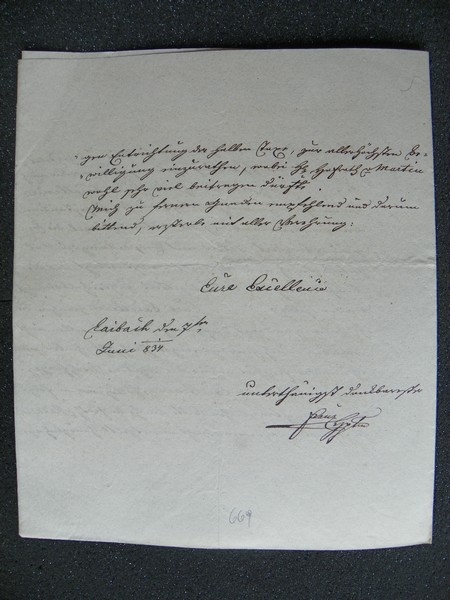 gen Entrichtung der halben Taxe, zur allerhöchsten Be-
willigung einzurathen, wobei H. Hofrath v Martin
wohl sehr viel beitragen dürfte.
Mich zu fernern Gnaden empfehlend und darum
bittend, ersterbe mit aller Verehrung:
Eure Excellenz
Laibach den 7ten
Juni 834
unterthänigst dankbarster
Franz
664